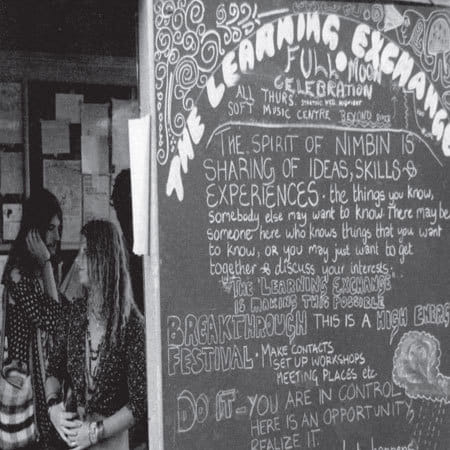 THE LEARNING EXCHANGE
FULL MOON
CELEBRATION
ALL THURS.
SOFT MUSIC CENTRE BEYOND
THE SPIRIT OF NIMBIN IS
SHARING OF IDEAS, SKILLS &
EXPERIENCES • the things you know,
somebody else may want to know There may be
someone here who knows things that you want
to know, or you may just want to get
together & discuss your interests.
THE LEARNING EXCHANGE
IS MAKING THIS POSSIBLE
BREAKTHROUGH THIS IS A HIGH ENERG
FESTIVAL • MAKE CONTACTS
SET UP WORKSHOPS
MEETING PLACES etc
DO IT — YOU ARE IN CONTROL
HERE IS AN OPPORTUNITY
REALIZE IT